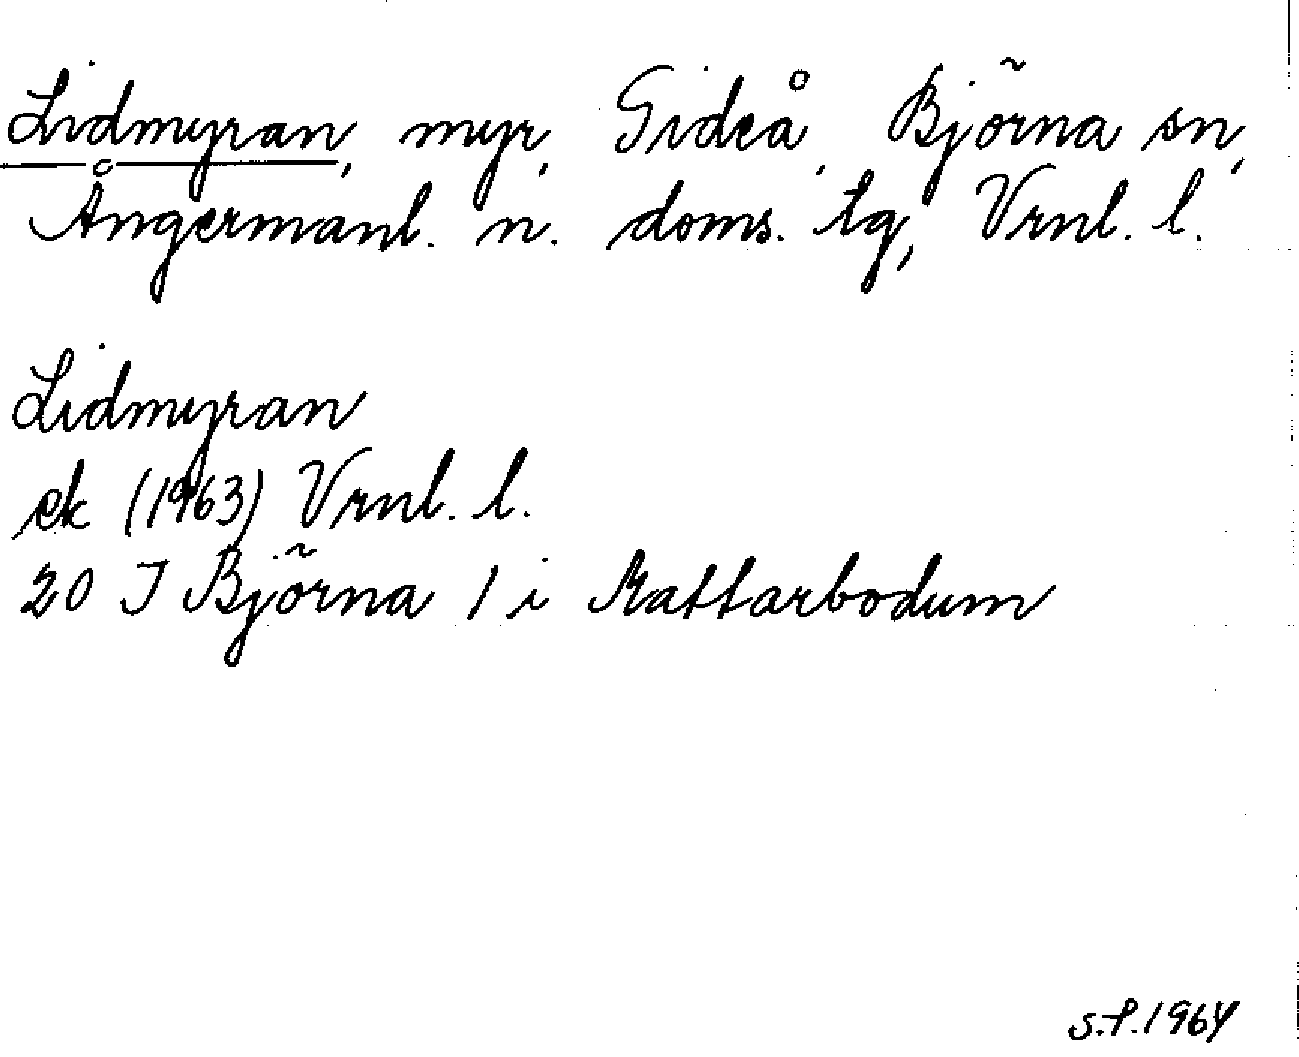 Lidmyran, myr, Gideå, Björna sn,
Ångermanl. n. doms. tg, Vrnl. l.
Lidmyran
ek (1963) Vrnl. l.
20 J Björna 1 i Mattarbodum
S.P. 1964